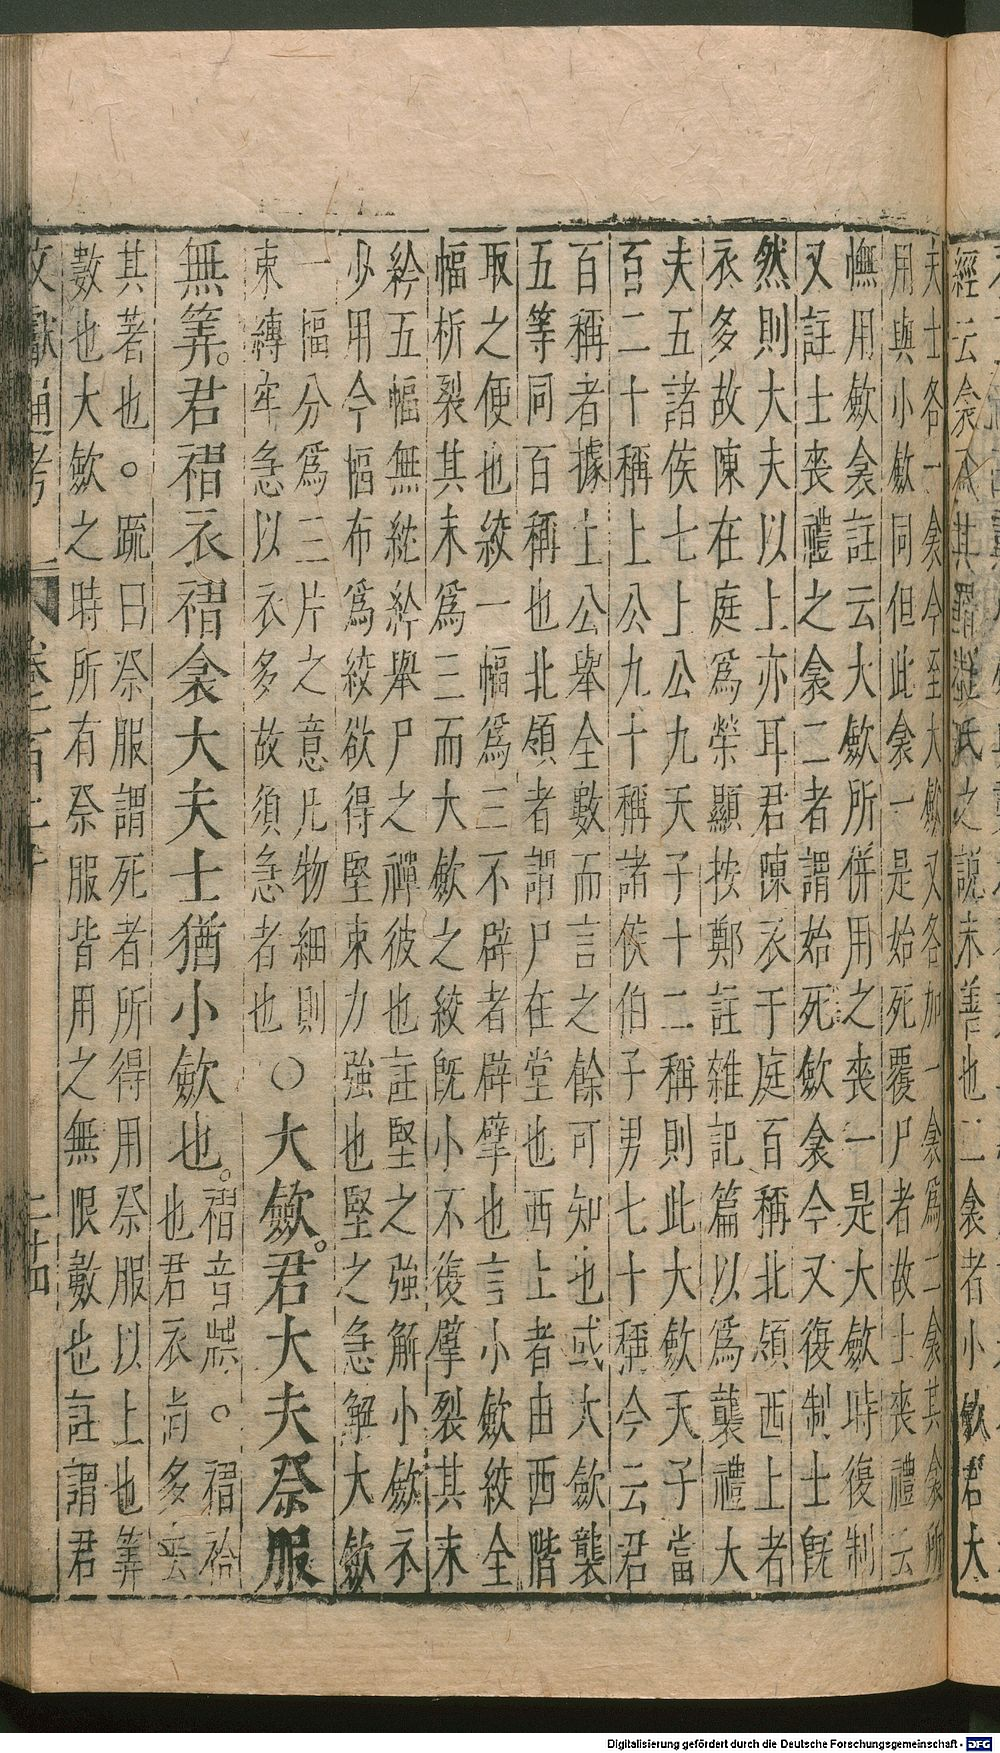 夫士各一衾今至大歛又各加一衾爲二衾其衾所
用與小歛同但此衾一是始死覆尸者故士喪禮云
幠用歛衾註云大歛所併用之喪一是大歛時復制
又註士喪禮之衾二者謂始死歛衾今又復制士旣
然則大夫以上亦耳君陳衣于庭百稱北領西上者
衣多故陳在庭爲榮顯按鄭註雜記篇以爲襲禮大
夫五諸侯七上公九天子十二稱則此大歛天子當
百二十稱上公九十稱諸侯伯子男七十稱今云君
百稱者據上公舉全數而言之餘可知也或大歛襲
五等同百稱也北領者謂尸在堂也西上者由西階
取之便也絞一幅爲三不辟者辟擘也言小歛絞全
幅析裂其末爲三而大歛之絞旣小不復擘裂其末
紟五幅無紞紟舉尸之襌彼也註堅之強解小歛衣
少用今幅布爲絞欲得堅束力強也堅之急解大歛
一幅分爲三片之意凡物細則
束縛牢急以衣多故須急者也
○大歛君大夫祭服
無筭。君褶衣褶衾大夫士猶小歛也。
褶音牒○褶袷
也君衣尚多去
其著也○疏曰祭服謂死者所得用祭服以上也筭
數也大歛之時所有祭服皆用之無限數也註謂君
文獻通考
二十四
Digitalisierung gefördert durch die Deutsche Forschungsgemeinschaft - DFG